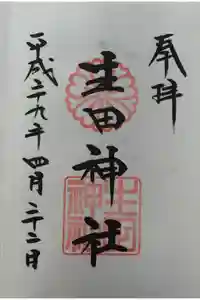 奉拝
生田神社
平成二十九年四月二十二日
生田
神社